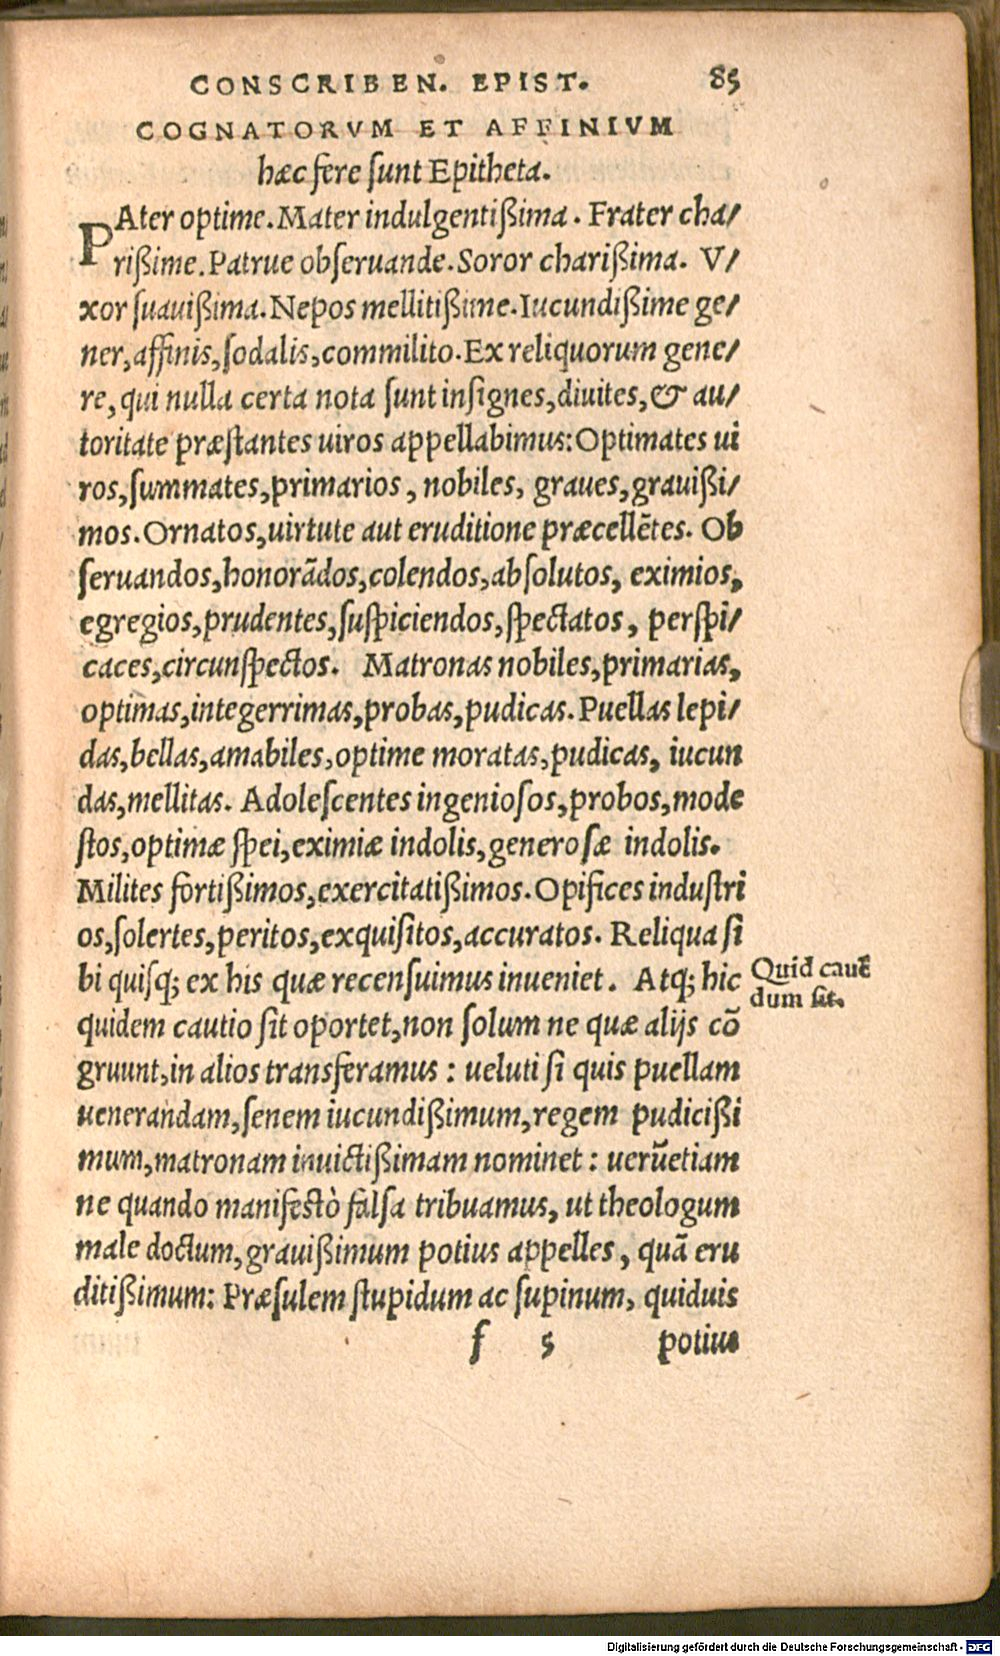 CONSCRIBEN. EPIST. 85
COGNATORVM ET AFFINIVM
hæc fere ſunt Epitheta.
PAter optime. Mater indulgentißima. Frater cha/
rißime. Patrue obſeruande. Soror charißima. V/
xor ſuauißima. Nepos mellitißime. Iucundißime ge/
ner, affinis, ſodalis, commilito. Ex reliquorum gene/
re, qui nulla certa nota ſunt inſignes, diuites, & au/
toritate præſtantes uiros appellabimus: Optimates ui
ros, ſummates, primarios, nobiles, graues, grauißi/
mos. Ornatos, uirtute aut eruditione præcellẽtes. Ob
ſeruandos, honorãdos, colendos, abſolutos, eximios,
egregios, prudentes, ſuſpiciendos, ſpectatos, perſpi/
caces, circunſpectos. Matronas nobiles, primarias,
optimas, integerrimas, probas, pudicas. Puellas lepi/
das, bellas, amabiles, optime moratas, pudicas, iucun
das, mellitas. Adoleſcentes ingenioſos, probos, mode
ſtos, optimæ ſpei, eximiæ indolis, generoſæ indolis.
Milites fortißimos, exercitatißimos. Opifices induſtri
os, ſolertes, peritos, exquiſitos, accuratos. Reliqua ſi
bi quiſq; ex his quæ recenſuimus inueniet. Atq; hic
Quid cauẽ
dum ſit.
quidem cautio ſit oportet, non ſolum ne quæ alijs cõ
gruunt, in alios transferamus : ueluti ſi quis puellam
uenerandam, ſenem iucundißimum, regem pudicißi
mum, matronam inuictißimam nominet : uerũetiam
ne quando manifeſtò falſa tribuamus, ut theologum
male doctum, grauißimum potius appelles, quã eru
ditißimum: Præſulem ſtupidum ac ſupinum, quiduis
f 5 potius
Digitalisierung gefördert durch die Deutsche Forschungsgemeinschaft - DFG